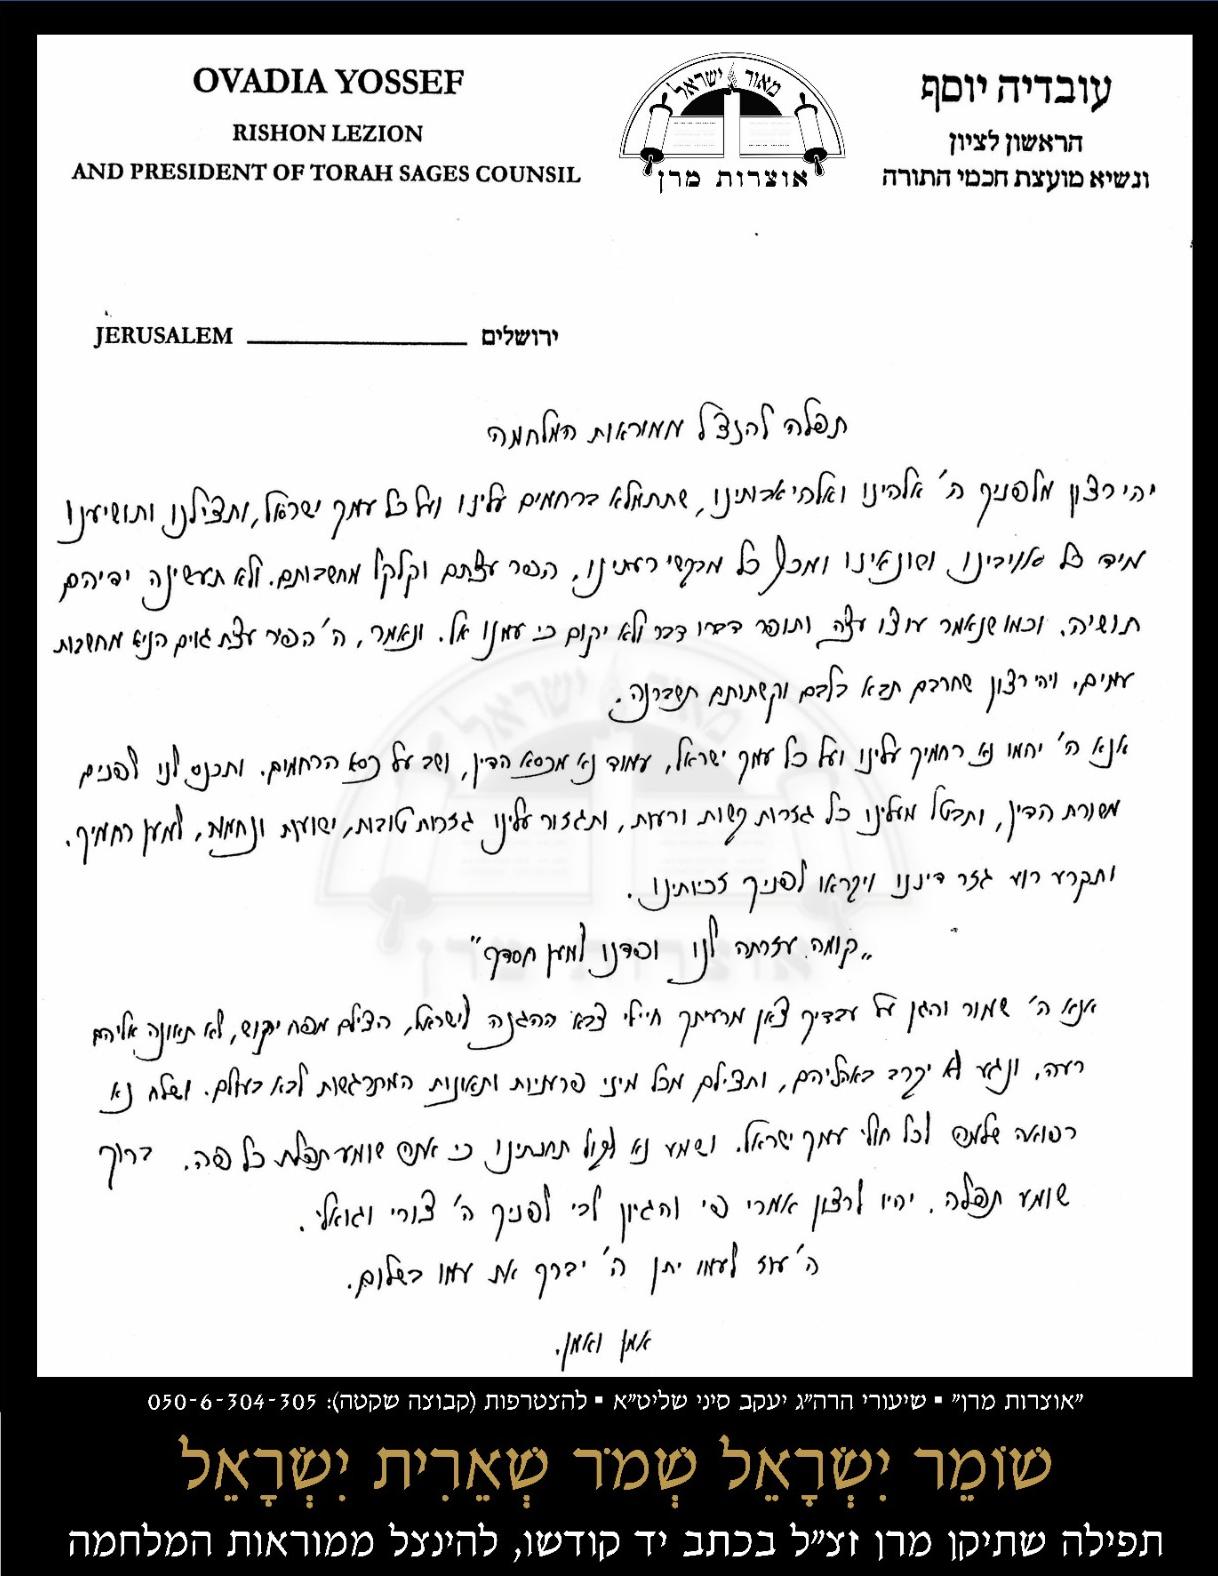 OVADIA YOSSEF
RISHON LEZION
AND PRESIDENT OF TORAH SAGES COUNSIL
מאור ישראל
אוצרות מרן
עובדיה יוסף
הראשון לציון
ונשיא מועצת חכמי התורה
JERUSALEM ירושלים
תפלה להנצל ממוראות המלחמה
יהי רצון מלפניך ה' אלהינו ואלהי אבותינו, שתתמלא ברחמים עלינו ועל כל עמך ישראל, ותצילנו ותושיענו
מיד כל אויבינו ושונאינו ומכל מבקשי רעתינו, הפר עצתם וקלקל מחשבותם. ולא תעשינה ידיהם
תושיה. וכמו שנאמר עוצו עצה ותופר דברו דבר ולא יקום כי עמנו אל. ונאמר, ה' הפיר עצת גוים הניא מחשבות
עמים. ויהי רצון שחרבם תבא בלבם וקשתותם תשברנה.
אנא ה' יהמו נא רחמיך עלינו ועל כל עמך ישראל, עמוד נא מכסא הדין, ושב על כסא הרחמים. ותכנס לנו לפנים
משורת הדין, ותבטל מעלינו כל גזרות קשות ורעות, ותגזור עלינו גזרות טובות, ישועות ונחמות, למען רחמיך.
ותקרע רוע גזר דיננו ויקראו לפניך זכיותינו.
„קומה עזרתה לנו ופדנו למען חסדך"
אנא ה' שמור והגן על עבדיך צאן מרעיתך חיילי צבא ההגנה לישראל, הצילם מפח יקוש, לא תאונה אליהם
רעה, ונגע לא יקרב באהליהם, ותצילם מכל מיני פרעניות ותאונות המתרגשות לבא בעולם. ושלח נא
רפואה שלמה לכל חולי עמך ישראל. ושמע נא לקול תחנתינו כי אתה שומע תפלת כל פה. ברוך
שומע תפלה. יהיו לרצון אמרי פי והגיון לבי לפניך ה' צורי וגואלי.
ה' עוז לעמו יתן ה' יברך את עמו בשלום.
אמן ואמן.
"אוצרות מרן" ▪ שיעורי הרה"ג יעקב סיני שליט"א ▪ להצטרפות (קבוצה שקטה): 050-6-304-305
שׁוֹמֵר יִשְׂרָאֵל שְׁמֹר שְׁאֵרִית יִשְׂרָאֵל
תפילה שתיקן מרן זצ"ל בכתב יד קודשו, להינצל ממוראות המלחמה